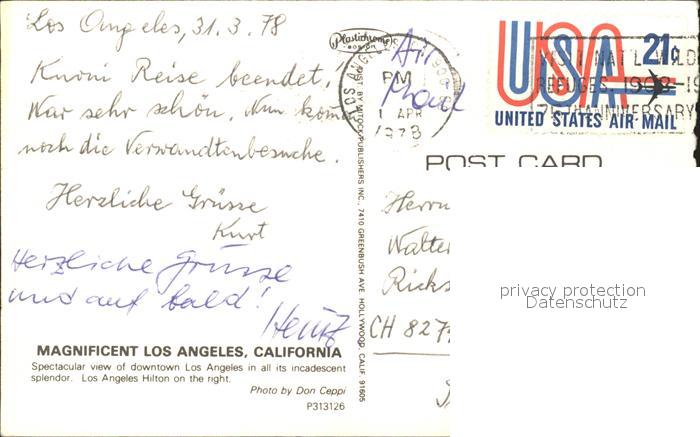 Los Angeles, 31.3.78
Kuoni Reise beendet!
War sehr schön. Nun kommen
noch die Verwandtenbesuche.
Herzliche Grüsse
Kurt
Herzliche Grüsse
und auf bald!
Heinz
MAGNIFICENT LOS ANGELES, CALIFORNIA
Spectacular view of downtown Los Angeles in all its incadescent
splendor. Los Angeles Hilton on the right.
Photo by Don Ceppi
P313126
Plastichrome
BOSTON
DIST. BY MITOCK PUBLISHERS INC., 7410 GREENBUSH AVE. HOLLYWOOD, CALIF. 91605
Air
Mail
LOS ANGELES
PM
1 APR
1978
USA 21c
UNITED STATES AIR MAIL
VISIT NAT'L WILD
REFUGES 1903-19
75TH ANNIVERSARY
POST CARD
Herrn
Walter
Ricks
CH 827
privacy protection
Datenschutz